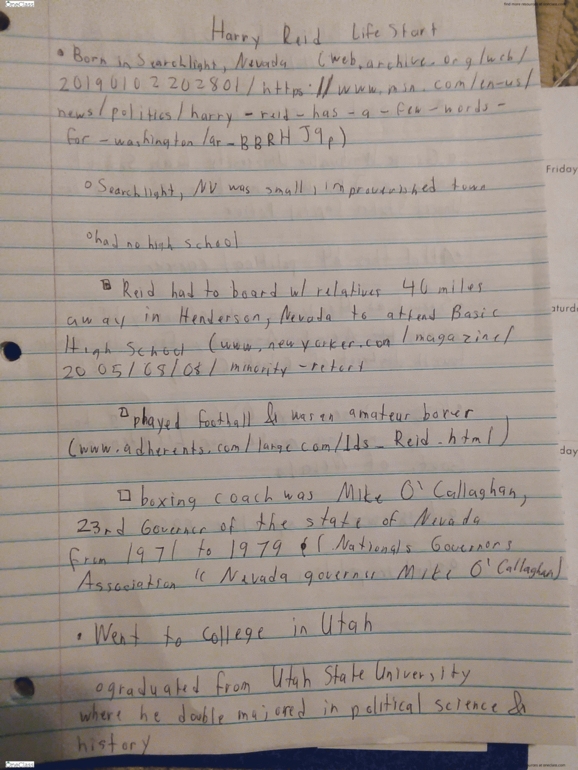 OneClass
find more resources at oneclass.com
Harry Reid Life Start
• Born in Searchlight, Nevada (web.archive.org/web/
20190102202801/https://www.msn.com/en-us/
news/politics/harry-reid-has-a-few-words-
for-washington/ar-BBRHJ9p)
Friday
○ Searchlight, NV was small, impoverished town
○ had no high school
Reid had to board w/ relatives 40 miles
away in Henderson, Nevada to attend Basic
High School (www.newyorker.com/magazine/
2005/08/08/minority-retort
□ played football & was an amateur boxer
(www.adherents.com/largecom/lds_Reid.html)
day
□ boxing coach was Mike O'Callaghan,
23rd Governor of the state of Nevada
from 1971 to 1979 (Nationals Governors
Association "Nevada governor Mike O'Callaghan)
• Went to college in Utah
○ graduated from Utah State University
where he double majored in political science &
history
OneClass